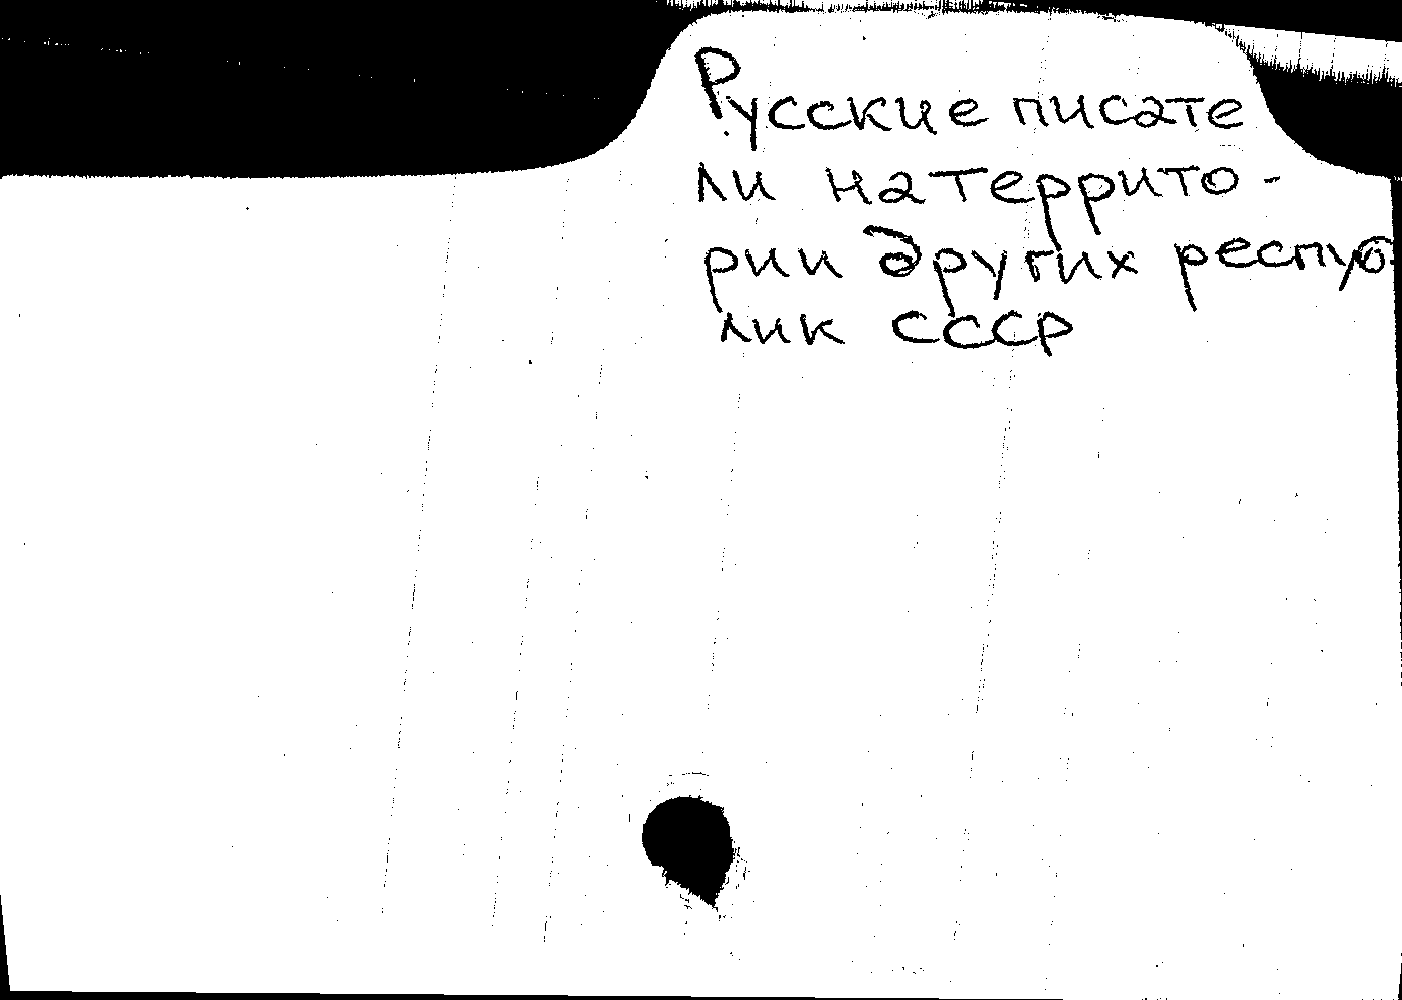 Русские писате
ли на террито-
рии других респуб-
лик СССР